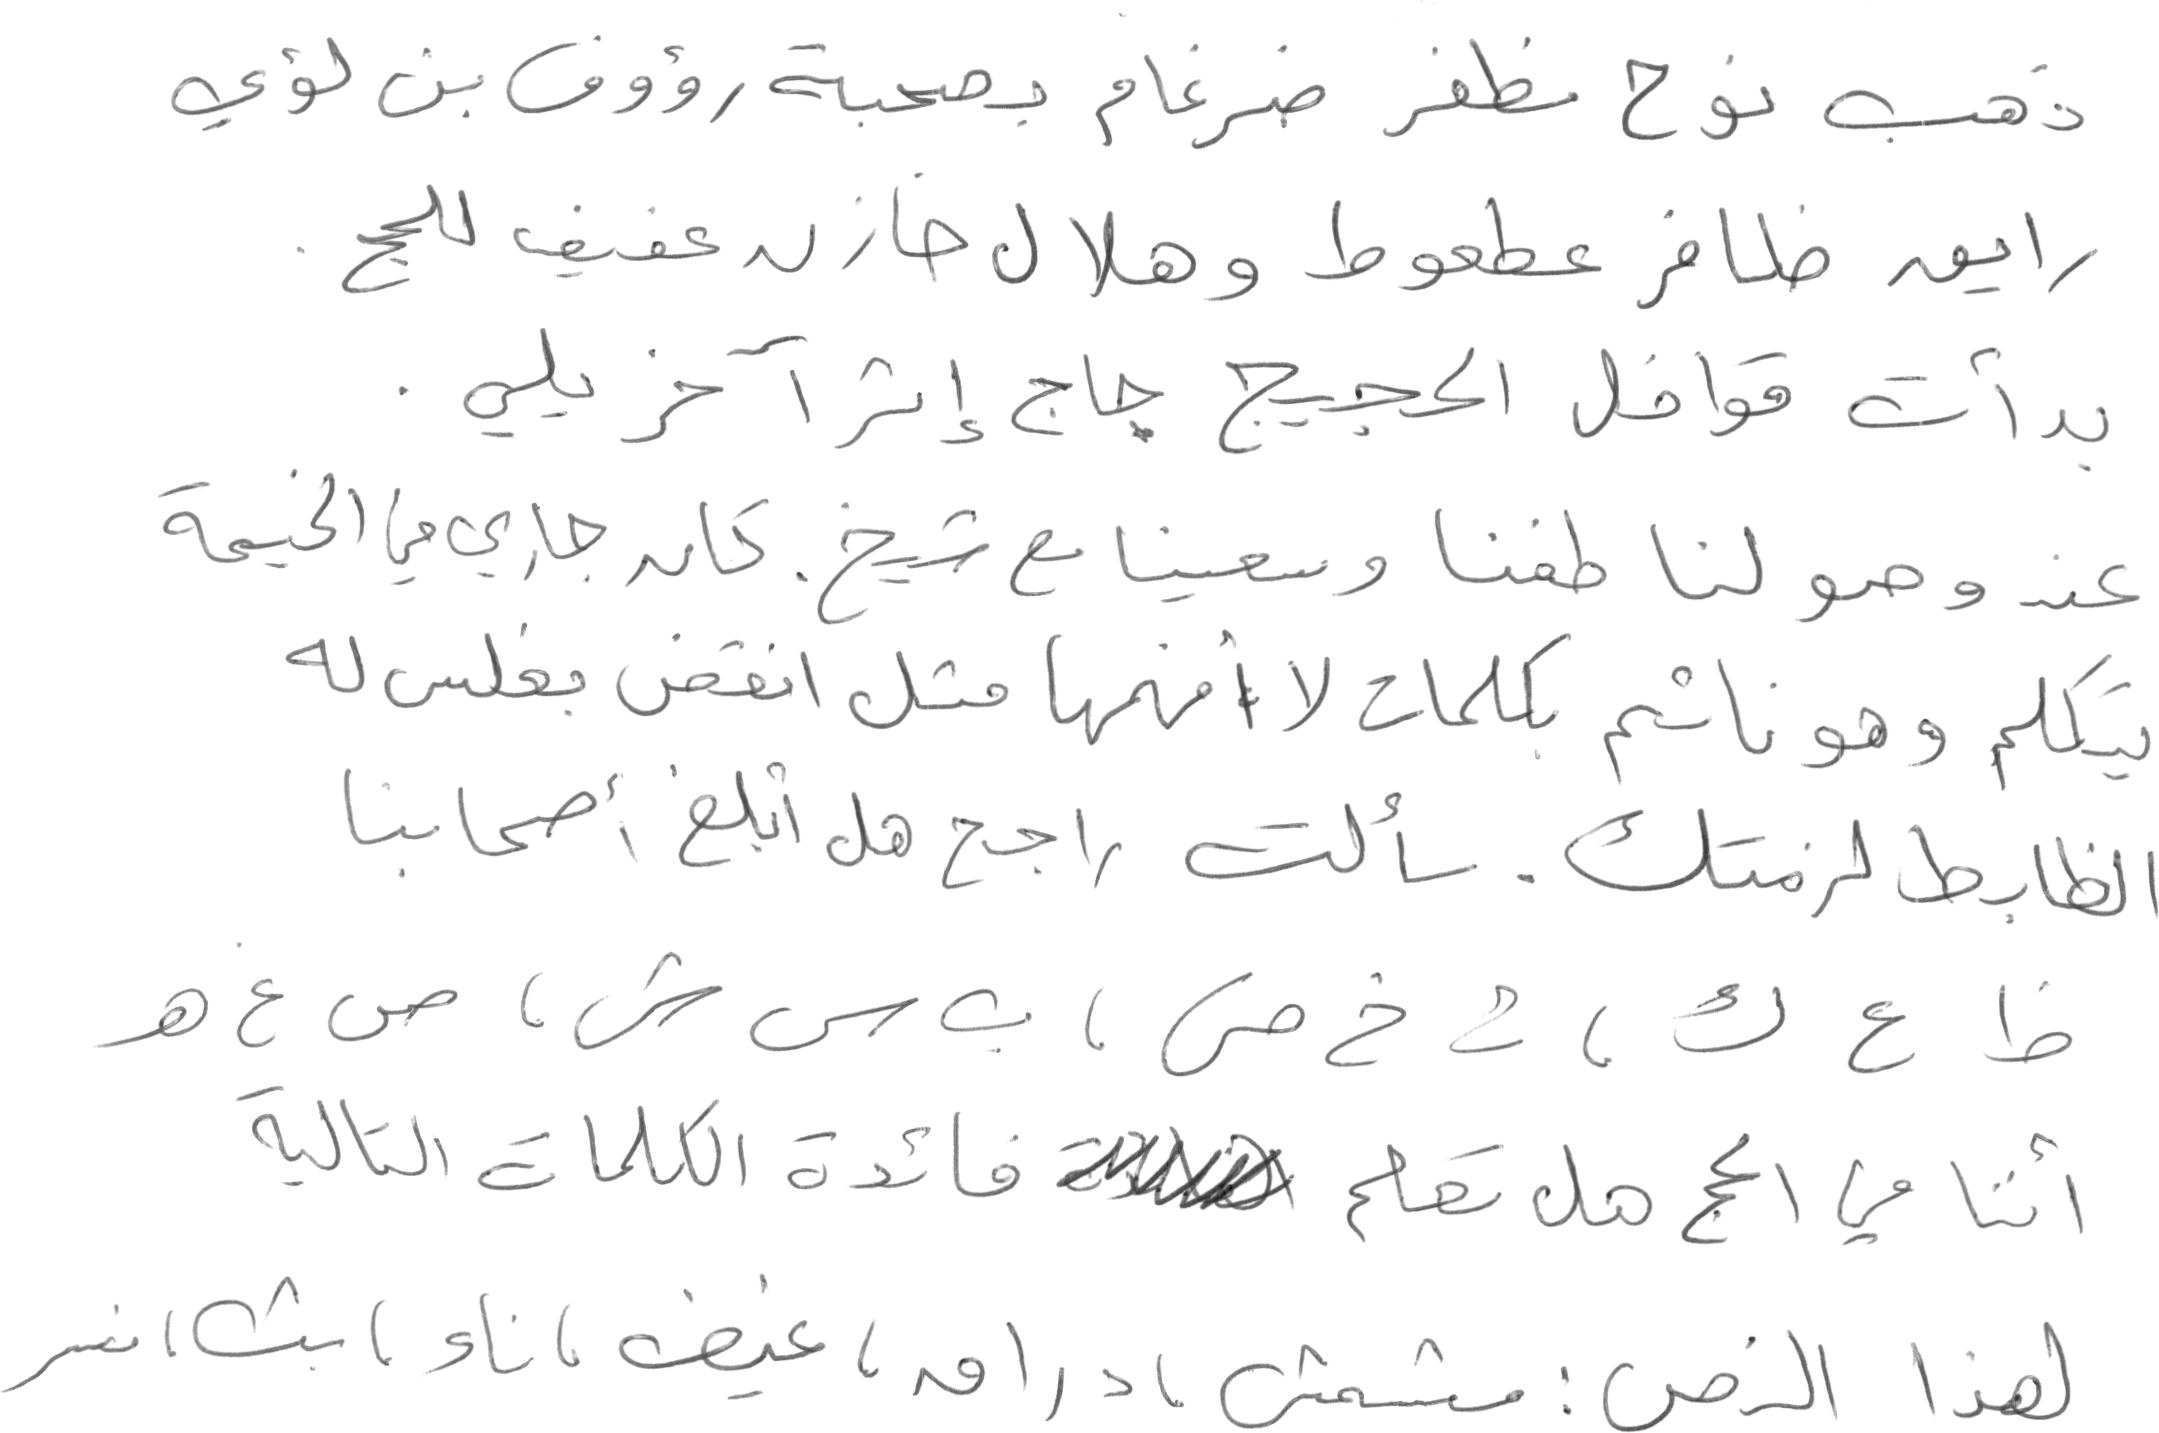 ذهب نوح مظفر ضرغام بصحبة رؤوف بن لؤي
رايق ظافر عطعوط وهلال خازن عفيف للحج .
بدأت قوافل الحجيج حاج إثر آخر يلي .
عند وصولنا طفنا وسعينا مع شيخ . كان جاري في الخيمة
يتكلم وهو نائم بكلمات لا أفهمها مثل انقض بغلس له
الظابط لزمتك . سألت راجح هل أبلغ أصحابنا
ظ ع ك ، ح خ ض ، ب س ش ، ص غ هـ
أثنا في الحج هل تعلم فائدة الكلمات التالية
لهذا النص : مشمش ، دراق ، عنيف ، ناء ، بث ، نسر